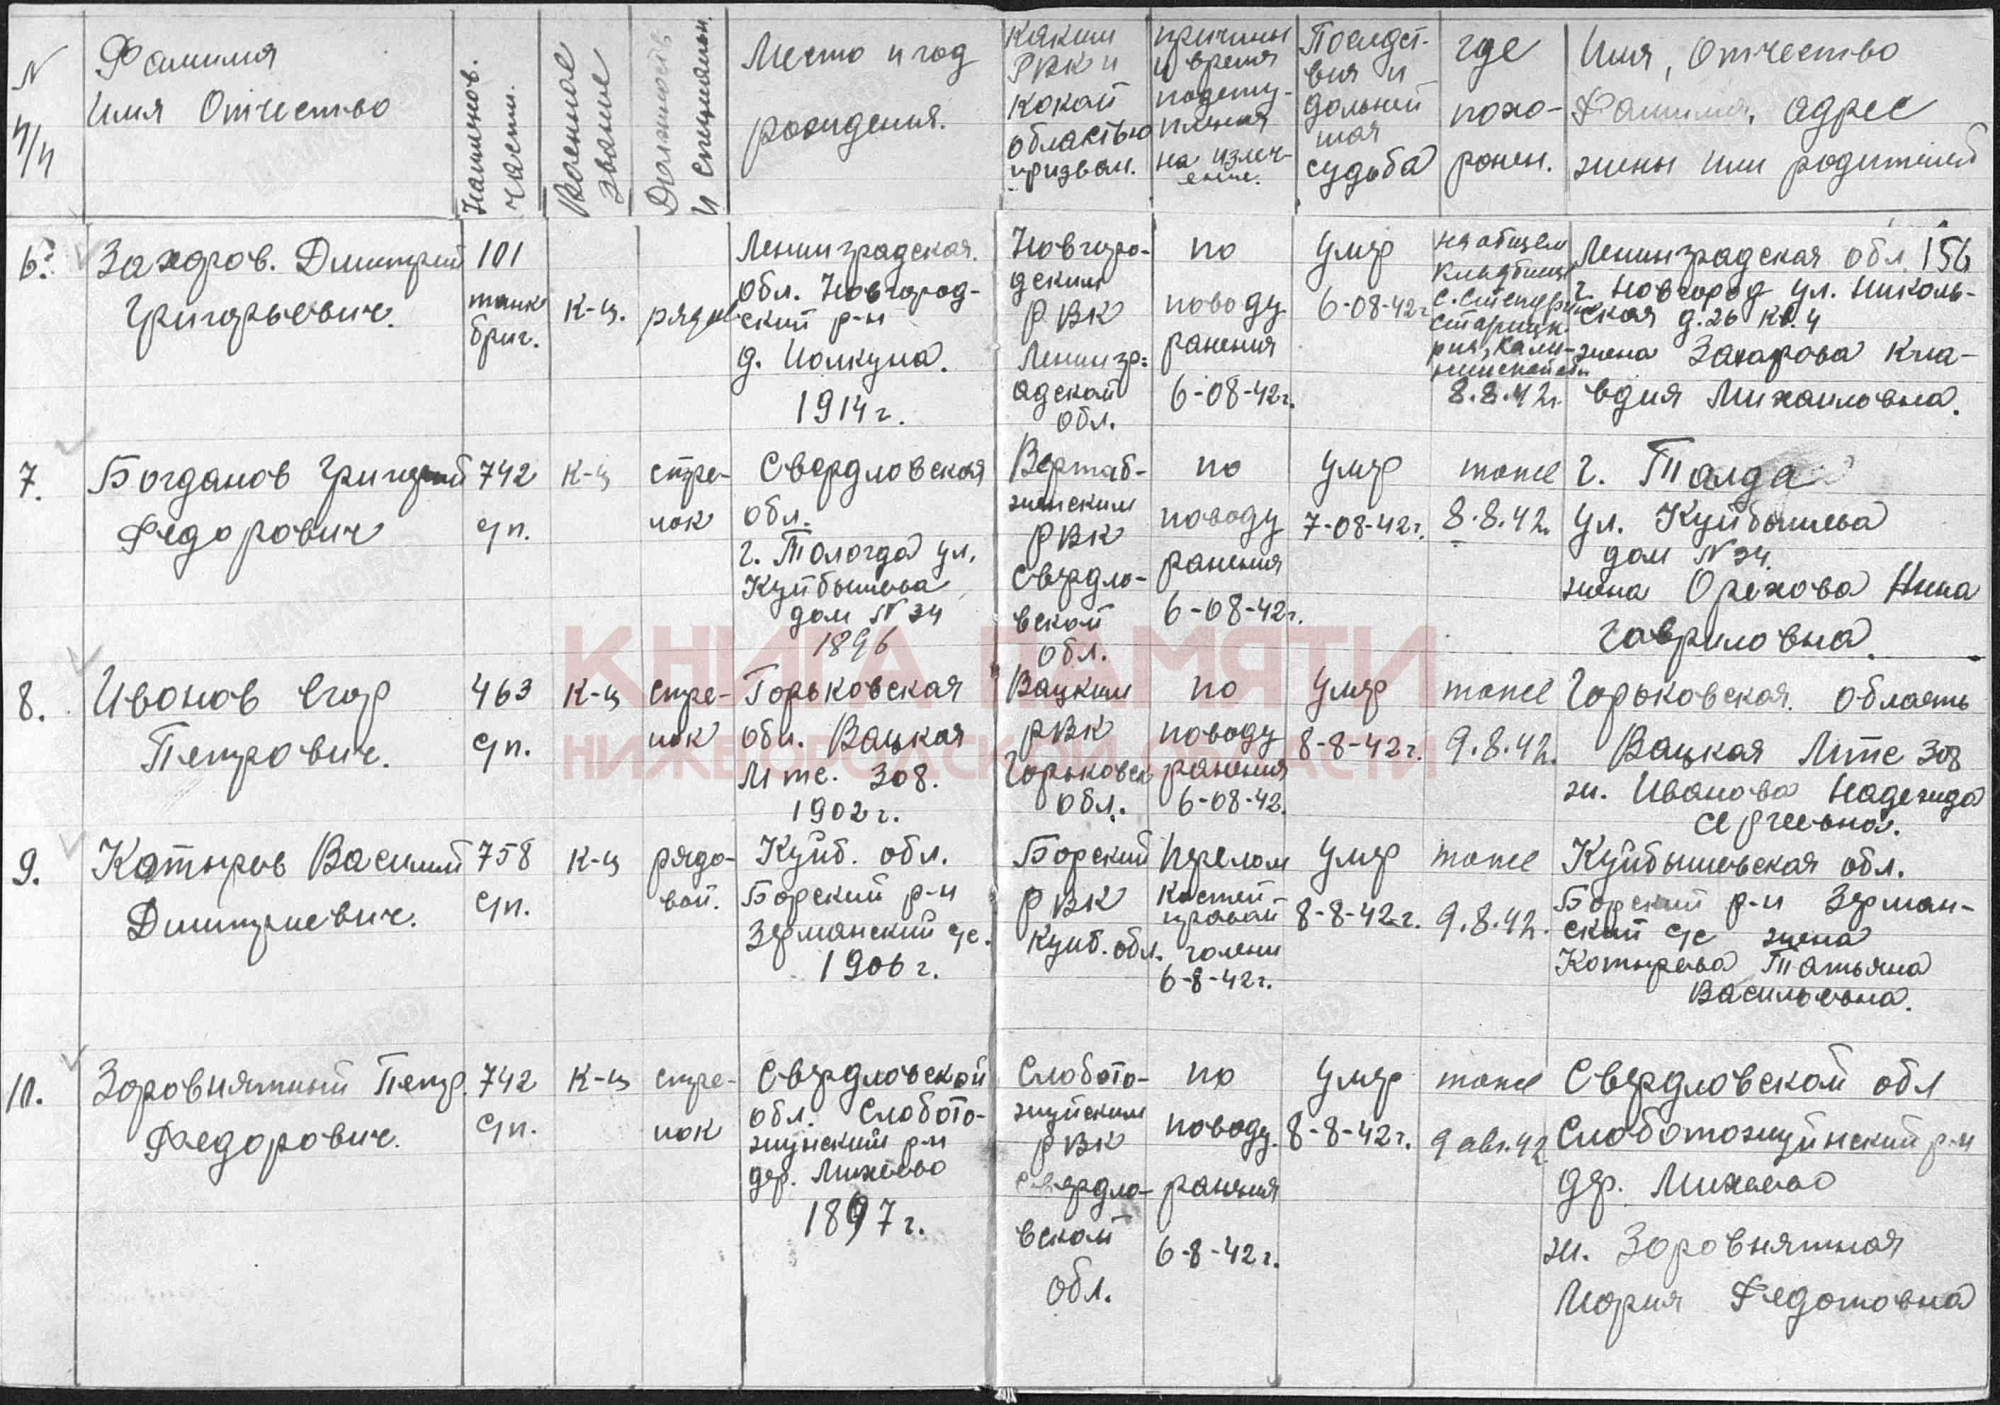 N п/п
Фамилия
Имя Отчество
Наименов. части.
Военное звание
Должность и специальн.
Место и год
рождения.
Каким
РВК и
какой
областью
призван.
причины
и время
поступ-
пления
на излеч-
ение.
Последст-
вия и
дальней
шая
судьба
где
похо-
ронен.
Имя, Отчество
Фамилия, адрес
жены или родителей
6.
Захоров. Дмитрий
Григорьевич.
101
танк
бриг.
к-ц.
рядов
Ленинградская.
обл. Новгород-
ский р-н
д.
1914 г.
Новгоро-
дским
РВК
Ленингр-
адской
обл.
по
поводу
ранения
6-08-42г.
умер
6-08-42г
на общем
кладбище
Старицк.
8.8.42г.
Ленинградская обл. 156
г. Новгород ул. Николь-
ская д.26 кв.4
жена Захарова Кла-
вдия Михаиловна.
7.
Богданов Григорий
Федорович
742
с/п.
к-ц
стре-
лок
Свердловская
обл.
г. Талогда ул.
Куйбышева
дом N 34
1896
РВК
Свердло-
вской
обл.
по
поводу
ранения
6-08-42г.
умер
7-08-42г.
тоже
8.8.42г.
г. Талда
ул. Куйбышева
дом N 34.
жена Орехова Нина
Гавриловна.
8.
Ивонов Егор
Петрович.
463
с/п.
к-ц
стре-
лок
Горьковская
обл. Вацкая
Мтс. 308.
1902г.
Вацким
РВК
Горьковск
обл.
по
поводу
ранения
6-08-42.
умер
8-8-42г.
тоже
9.8.42г.
Горьковская. область
Вацкая Мтс 308
ж. Иванова Надежда
Сергеевна.
9.
Катырев Василий
Дмитриевич.
758
с/п.
к-ц
рядо-
вой.
Куйб. обл.
Борский р-н
Зерманский с/с.
1906г.
Борский
РВК
Куйб. обл.
перелом
костей
правой
голени
6-8-42г.
умер
8-8-42г.
тоже
9.8.42г.
Куйбышевская обл.
Борский р-н Зерман-
ский с/с жена
Котырева Татьяна
Васильевна.
10.
Зоровнятный Петр.
Федорович.
742
с/п.
к-ц
стре-
лок
Свердловской
обл. Слобото-
жунский р-н
дер. Михеево
1897г.
Слобото-
жуйским
РВК
Свердло-
вской
обл.
по
поводу.
ранения
6-8-42г.
умер
8-8-42г.
тоже
9 авг.42
Свердловской обл
Слоботожуйнский р-н
дер. Михеево
ж. Зоровнятная
Мория Федотовна
КНИГА ПАМЯТИ
НИЖЕГОРОДСКОЙ ОБЛАСТИ